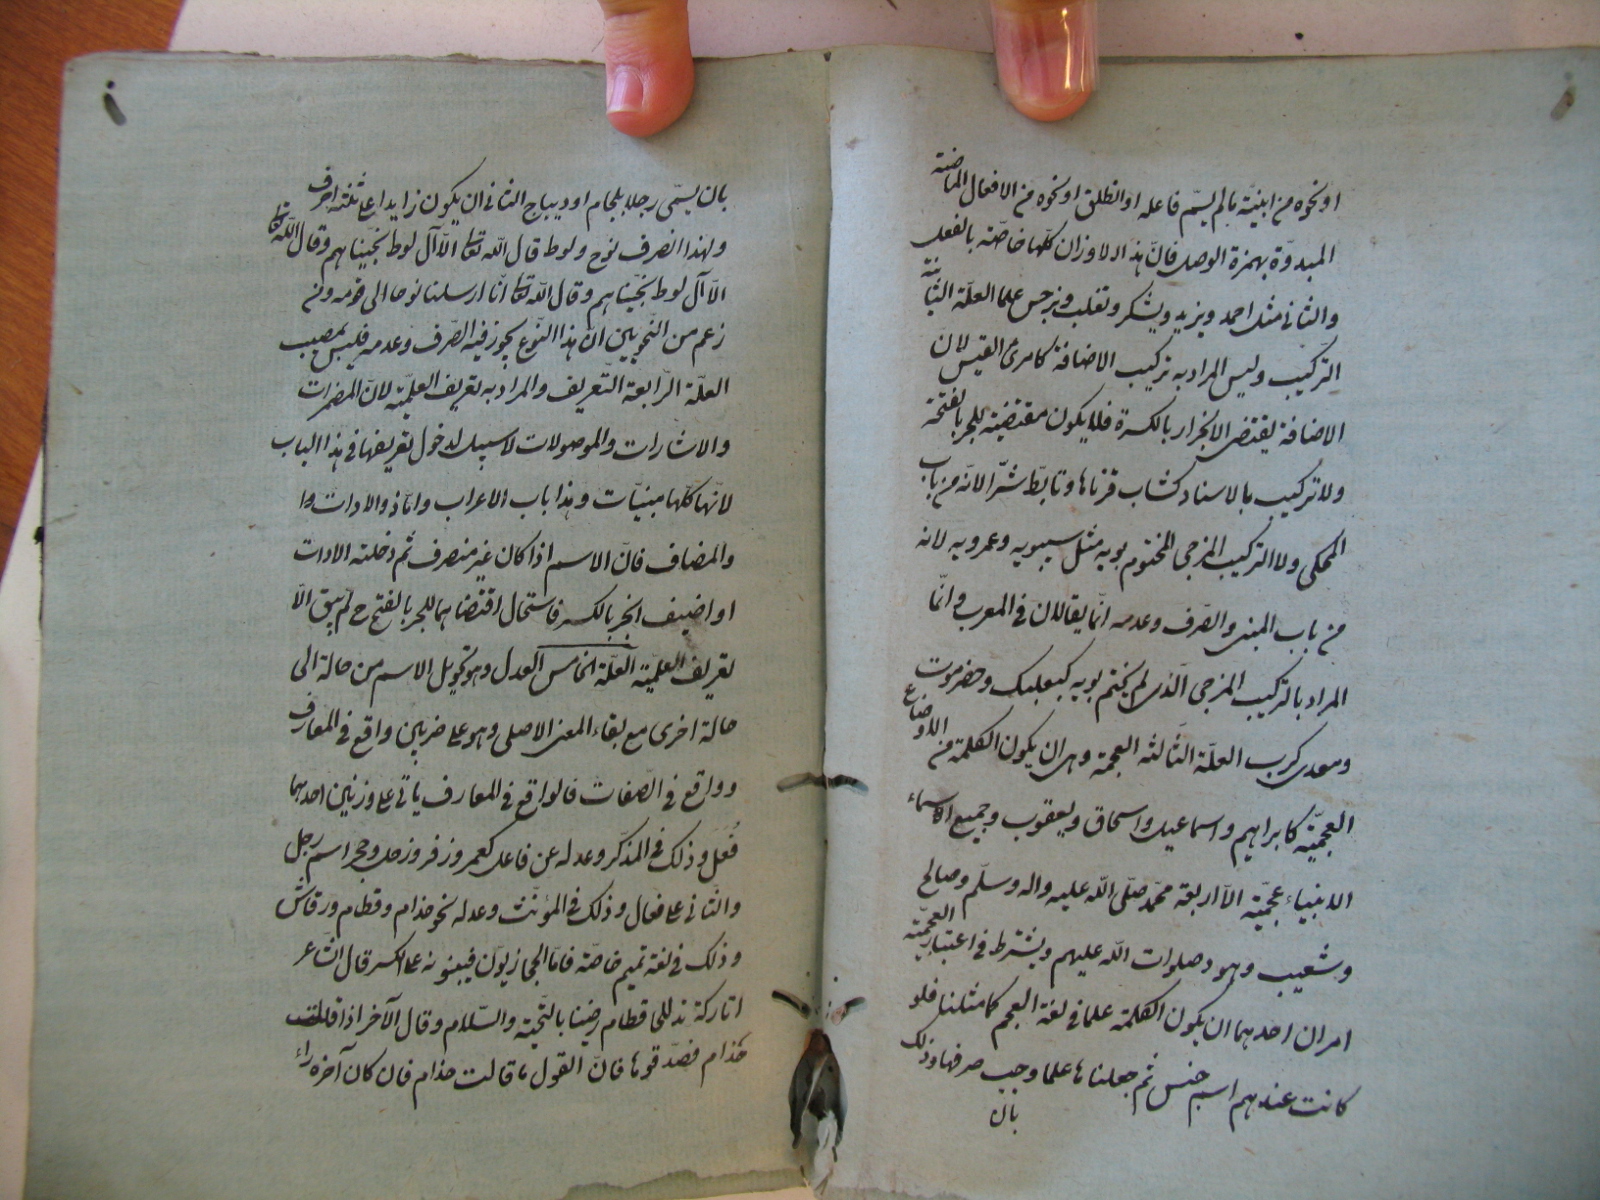 او نحوه من ابنية مالم يسم فاعله او انطلق او نحوه من الافعال الماضية
المبدوة بهمزة الوصل فانّ هذه الاوزان كلّها خاصّة بالفعل
والثانى مثل احمد ويزيد ويشكر وتغلب ونرجس علما العلّة الثانية
التركيب وليس المراد به تركيب الاضافة كامرئ القيس لان
الاضافة يقتضى الانجرار بالكسرة فلا يكون مقتضية للجر بالفتحة
ولا تركيب بالاسناد كشاب قرناها وتابّط شرّا لانّه من باب
المحكى ولا التركيب المزجى المختوم بويه مثل سيبويه وعمرويه لانه
من باب المبنى والصّرف وعدمه انّما يقالان فى المعرب وانّما
المراد بالتركيب المزجى الّذى لم يختم بويه كبعلبك وحضرموت
ومعدى كرب العلّة الثالثه العجمة وهى ان يكون الكلمة من الاوضاع
العجميّة كابراهيم واسماعيل واسحاق ويعقوب وجميع اسماء
الانبياء عجميّة الّا اربعة محمّد صلّى اللّه عليه واله وسلّم وصالح
وشعيب وهود صلوات اللّه عليهم ويشترط فى اعتبار العجميّة
امران احدهما ان يكون الكلمة علما فى لغة العجم كما مثلنا فلو
كانت عندهم اسم جنس ثم جعلناها علما وجب صرفها وذلك
بان
بان يسمّى رجلا بلجام او ديباج الثانى ان يكون زايدا على ثلثة احرف
ولهذا انصرف نوح ولوط قال اللّه تعا الّا آل لوط نجّيناهم وقال اللّه تعا
الّا آل لوط نجّيناهم وقال اللّه تعا انّا ارسلنا نوحا الى قومه ومن
زعم من النّحويين انّ هذا النّوع يجوز فيه الصّرف وعدمه فليس بمصيب
العلّة الرّابعة التّعريف والمراد به تعريف العلميّة لانّ المضمرات
والاشارات والموصولات لا سبيل لدخول تعريفها فى هذا الباب
لانّها كلّها مبنيّات وهذا باب الاعراب وامّا ذو الادات
والمضاف فانّ الاسم اذا كان غير منصرف ثم دخلته الادات
او اضيف انجر بالكسر فاستحال اقتضاهما للجر بالفتح ح لم يبق الّا
تعريف العلميّة العلّة الخامس العدل وهو تحويل الاسم من حالة الى
حالة اخرى مع بقاء المعنى الاصلى وهو على ضربين واقع فى المعارف
وواقع فى الصّفات فالواقع فى المعارف ياتى على وزنين احدهما
فُعَل وذلك فى المذكّر وعدله عن فاعل كعمر وزفر وزحل وجحر اسم رجل
والثانى على فعال وذلك فى المؤنّث وعدله نحو حذام وقطام ورقاش
وذلك فى لغة تميم خاصّة فامّا الحجازيّون فيبنونه على الكسر قال الشّاعر
اتاركة تدللها قطام رضينا بالتّحيّة والسّلام وقال الآخر اذا قالت
حذام فصدّقوها فانّ القول ما قالت حذام فان كان آخره راء